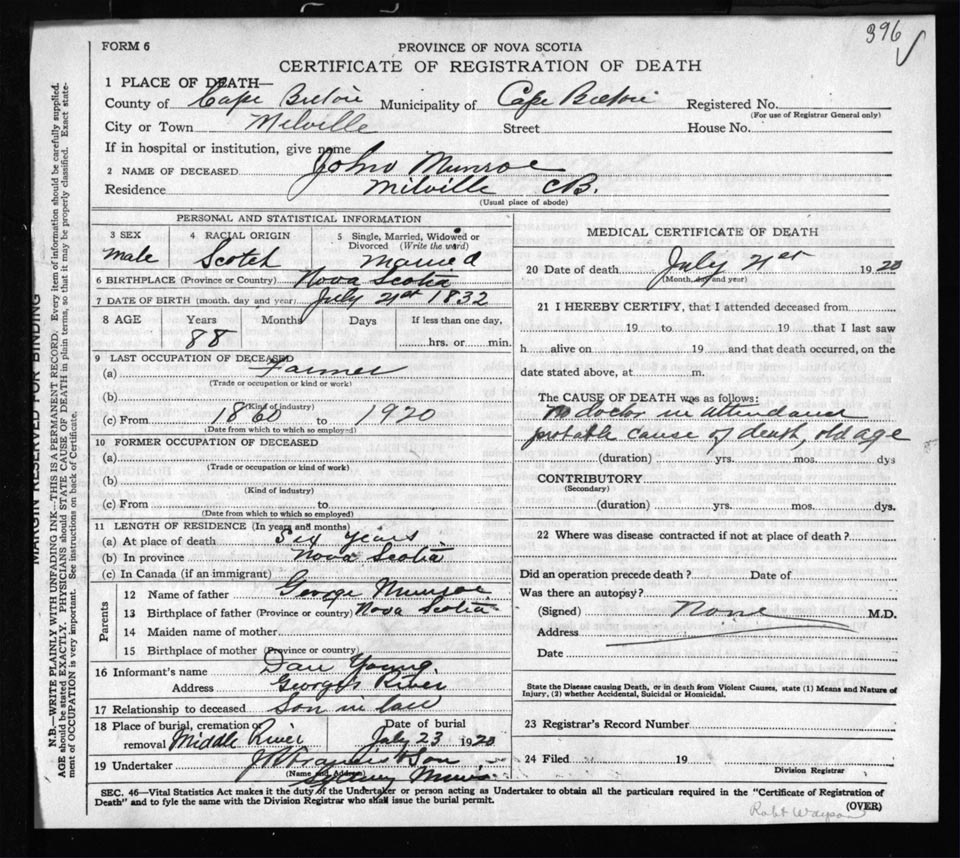 396 ✓
FORM 6
PROVINCE OF NOVA SCOTIA
CERTIFICATE OF REGISTRATION OF DEATH
1 PLACE OF DEATH—
County of Cape Breton Municipality of Cape Breton Registered No.
(For use of Registrar General only)
City or Town Milville Street House No.
If in hospital or institution, give name
2 NAME OF DECEASED John Munroe
Residence Milville CB.
(Usual place of abode)
PERSONAL AND STATISTICAL INFORMATION
3 SEX 4 RACIAL ORIGIN 5 Single, Married, Widowed or Divorced (Write the word)
Male Scotch Married
6 BIRTHPLACE (Province or Country) Nova Scotia
7 DATE OF BIRTH (month, day and year) July 21st 1832
8 AGE Years Months Days If less than one day,
88 hrs. or min.
9 LAST OCCUPATION OF DECEASED
(a) Farmer
(Trade or occupation or kind or work)
(b)
(Kind of industry)
(c) From 1860 to 1920
(Date from which to which so employed)
10 FORMER OCCUPATION OF DECEASED
(a)
(Trade or occupation or kind of work)
(b)
(Kind of industry)
(c) From to
(Date from which to which so employed)
11 LENGTH OF RESIDENCE (In years and months)
(a) At place of death Six years
(b) In province Nova Scotia
(c) In Canada (if an immigrant)
Parents
12 Name of father George Munroe
13 Birthplace of father (Province or country) Nova Scotia
14 Maiden name of mother
15 Birthplace of mother (Province or country)
16 Informant's name Dan Young.
Address Georges River
17 Relationship to deceased Son in law
18 Place of burial, cremation or removal Middle River Date of burial July 23 1920
19 Undertaker & Son
(Name and Address)
Sydney Mines
MEDICAL CERTIFICATE OF DEATH
20 Date of death July 21st 1920
(Month, day and year)
21 I HEREBY CERTIFY, that I attended deceased from
19 to 19 that I last saw
h alive on 19 and that death occurred, on the
date stated above, at m.
The CAUSE OF DEATH was as follows:
No doctor in attendance
probable cause of death, old age
(duration) yrs. mos. dys
CONTRIBUTORY
(Secondary)
(duration) yrs. mos. dys.
22 Where was disease contracted if not at place of death?
Did an operation precede death? Date of
Was there an autopsy?
(Signed) None M.D.
Address
Date
State the Disease causing Death, or in death from Violent Causes, state (1) Means and Nature of
Injury, (2) whether Accidental, Suicidal or Homicidal.
23 Registrar's Record Number
24 Filed 19
Division Registrar
SEC. 46—Vital Statistics Act makes it the duty of the Undertaker or person acting as Undertaker to obtain all the particulars required in the "Certificate of Registration of
Death" and to fyle the same with the Division Registrar who shall issue the burial permit.
(OVER)
Robt
MARGIN RESERVED FOR BINDING
N.B.—WRITE PLAINLY WITH UNFADING INK—THIS IS A PERMANENT RECORD. Every item of information should be carefully supplied.
AGE should be stated EXACTLY. PHYSICIANS should STATE CAUSE OF DEATH in plain terms, so that it may be properly classified. Exact state-
ment of OCCUPATION is very important. See instructions on back of Certificate.